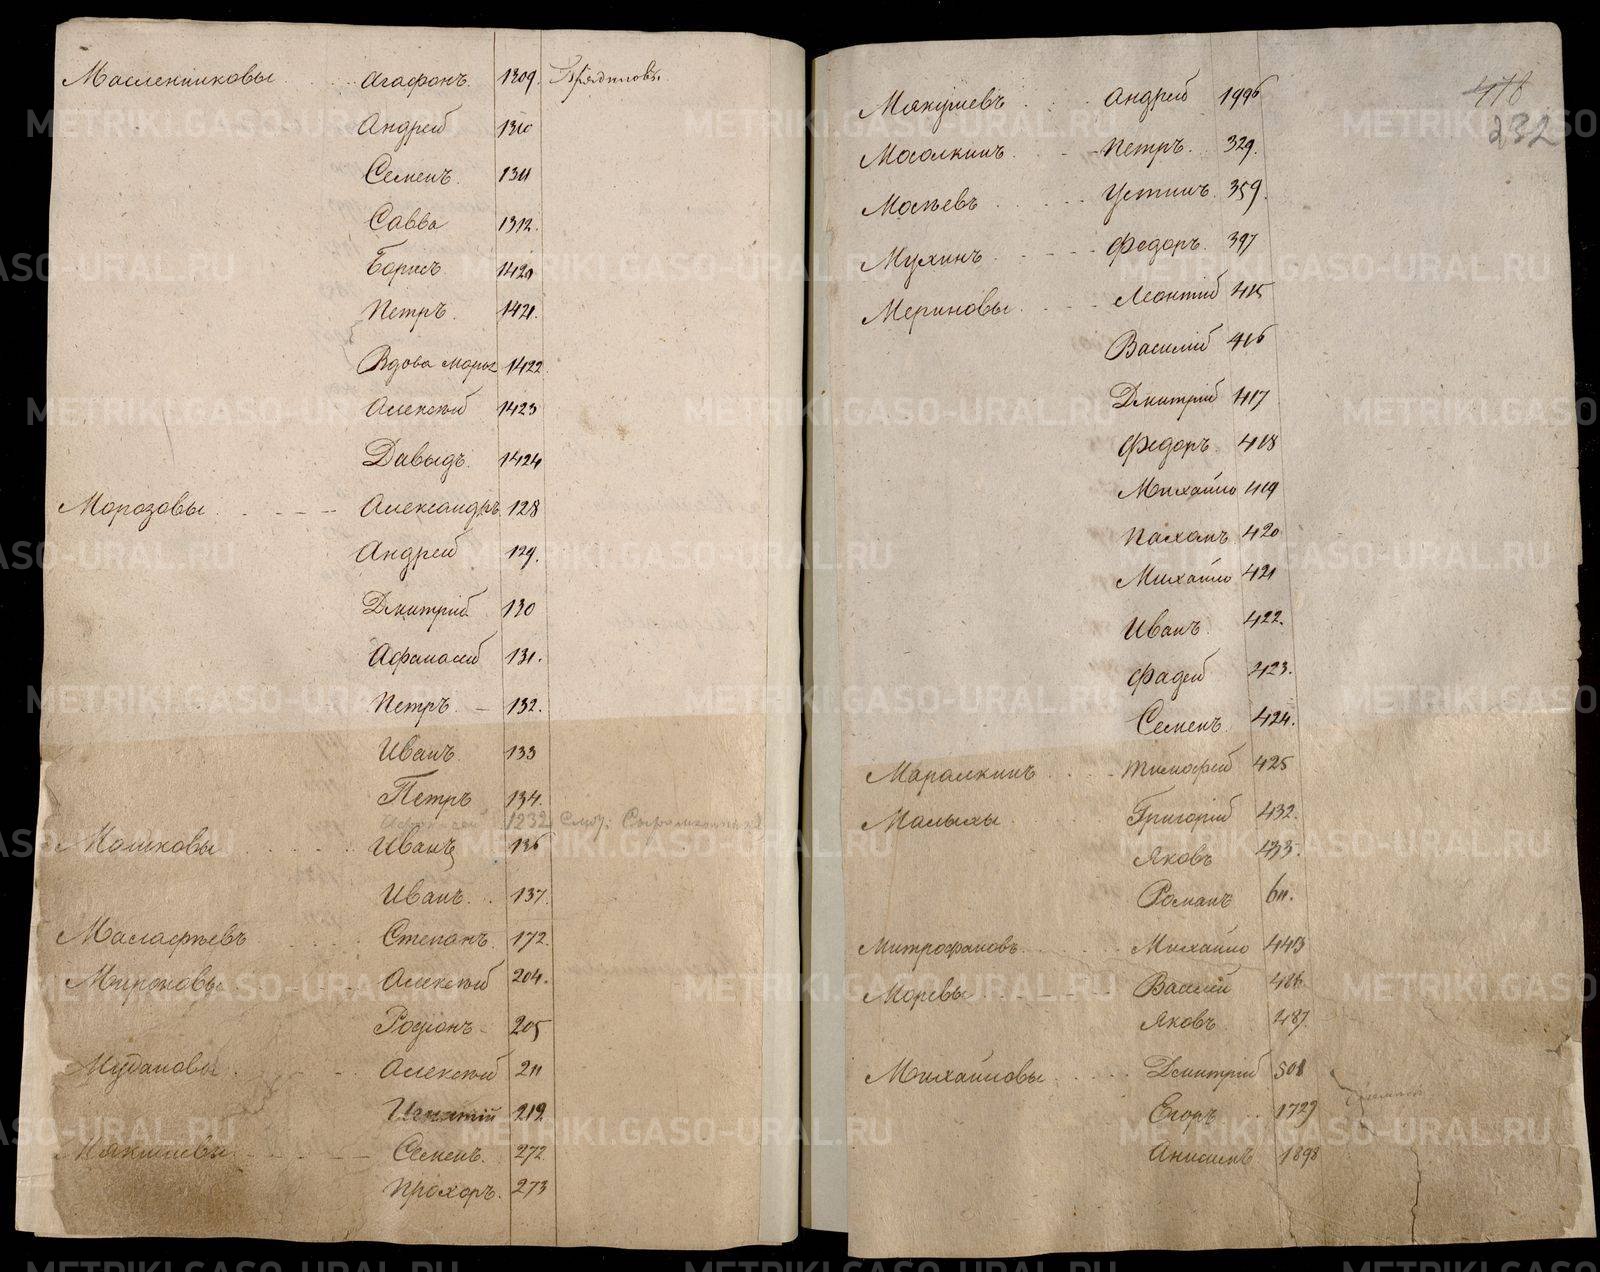 Масленниковы Агафонъ. 1309.
Андрей 1310
Семенъ. 1311
Савва 1312.
Борисъ 1420
Петръ. 1421.
Вдова Марья 1422.
Алексѣй 1423
Давыдъ. 1424
Морозовы Александръ 128
Андрей 129.
Дмитрий 130
Афанасий 131.
Петръ 132.
Иванъ 133
Петръ 134.
1232 Смот:
Машковы Иванъ 136
Иванъ. 137.
Малафѣевъ Степанъ. 172.
Мироновы Алексѣй 204.
Родіонъ 205
Алексѣй 211
212
Мякишевы Семенъ. 272
Прохоръ. 273
478
232
Андрей 1996
Масалкинъ. Петръ. 329.
Мосѣевъ Устинъ. 359.
Мухинъ Федоръ. 397
Мериновы Леонтий 415
Василий 416
Дмитрий 417
Федоръ. 418
Михайло 419
Пахомъ 420
Михайло 421
Иванъ 422.
Фадей 423.
Семенъ 424.
Маралкинъ Тимофей 425
Малыхъ Григорий 432.
Яковъ 433.
Романъ 611.
Митрофановъ Михайло 443
Василий 486
Яковъ 487
Михайловы Дмитрий 501
Егоръ 1729
Анисимъ 1898
METRIKI.GASO-URAL.RU